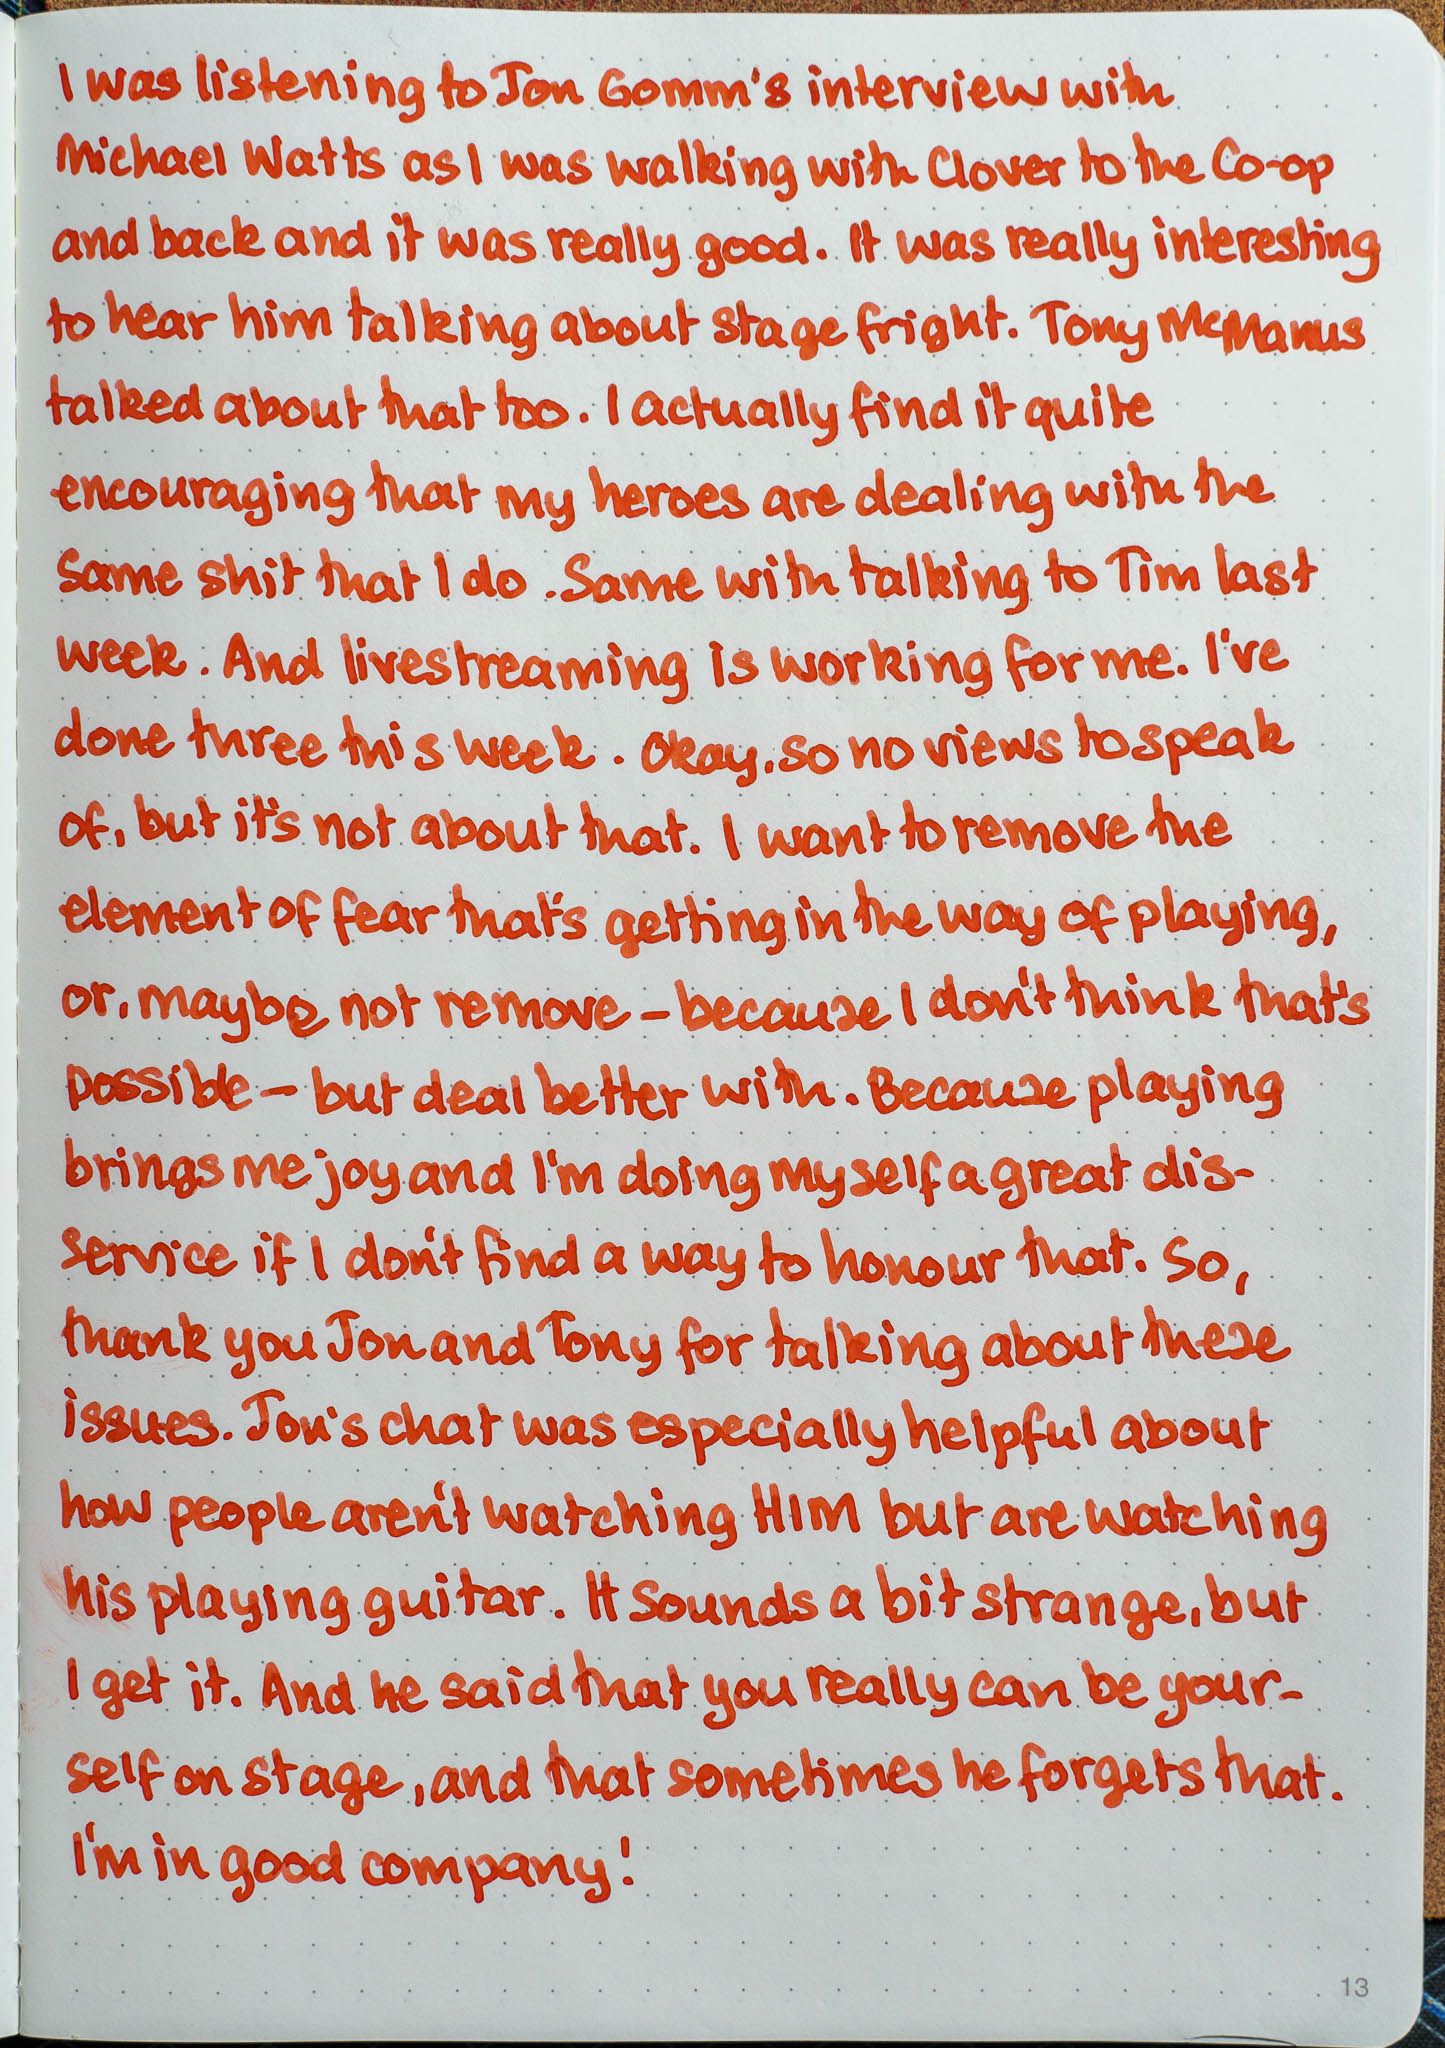 I was listening to Jon Gomm's interview with
Michael Watts as I was walking with Clover to the Co-op
and back and it was really good. It was really interesting
to hear him talking about stage fright. Tony McManus
talked about that too. I actually find it quite
encouraging that my heroes are dealing with the
same shit that I do. Same with talking to Tim last
week. And livestreaming is working for me. I've
done three this week. Okay, so no views to speak
of, but it's not about that. I want to remove the
element of fear that's getting in the way of playing,
or, maybe not remove – because I don't think that's
possible – but deal better with. Because playing
brings me joy and I'm doing myself a great dis-
service if I don't find a way to honour that. So,
thank you Jon and Tony for talking about these
issues. Jon's chat was especially helpful about
how people aren't watching HIM but are watching
his playing guitar. It sounds a bit strange, but
I get it. And he said that you really can be your-
self on stage, and that sometimes he forgets that.
I'm in good company!
13